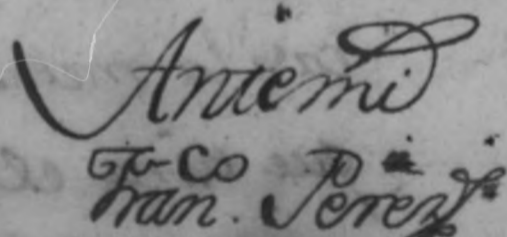 Ante mi
Fran.co Perez